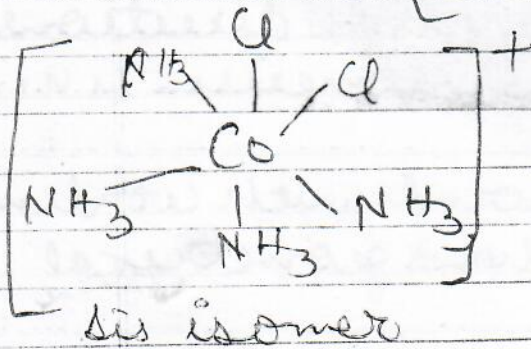 Cl
NH3 Cl +
Co
NH3 NH3
NH3
sis isomer